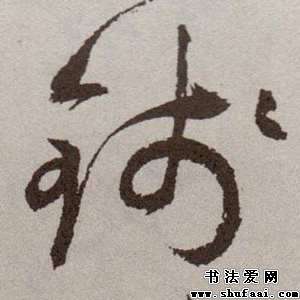 錢
书法爱网
www.shufaai.com